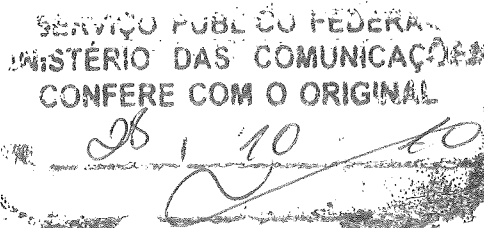 SERVIÇO PÚBLICO FEDERAL
MINISTÉRIO DAS COMUNICAÇÕES
CONFERE COM O ORIGINAL
28, 10 10